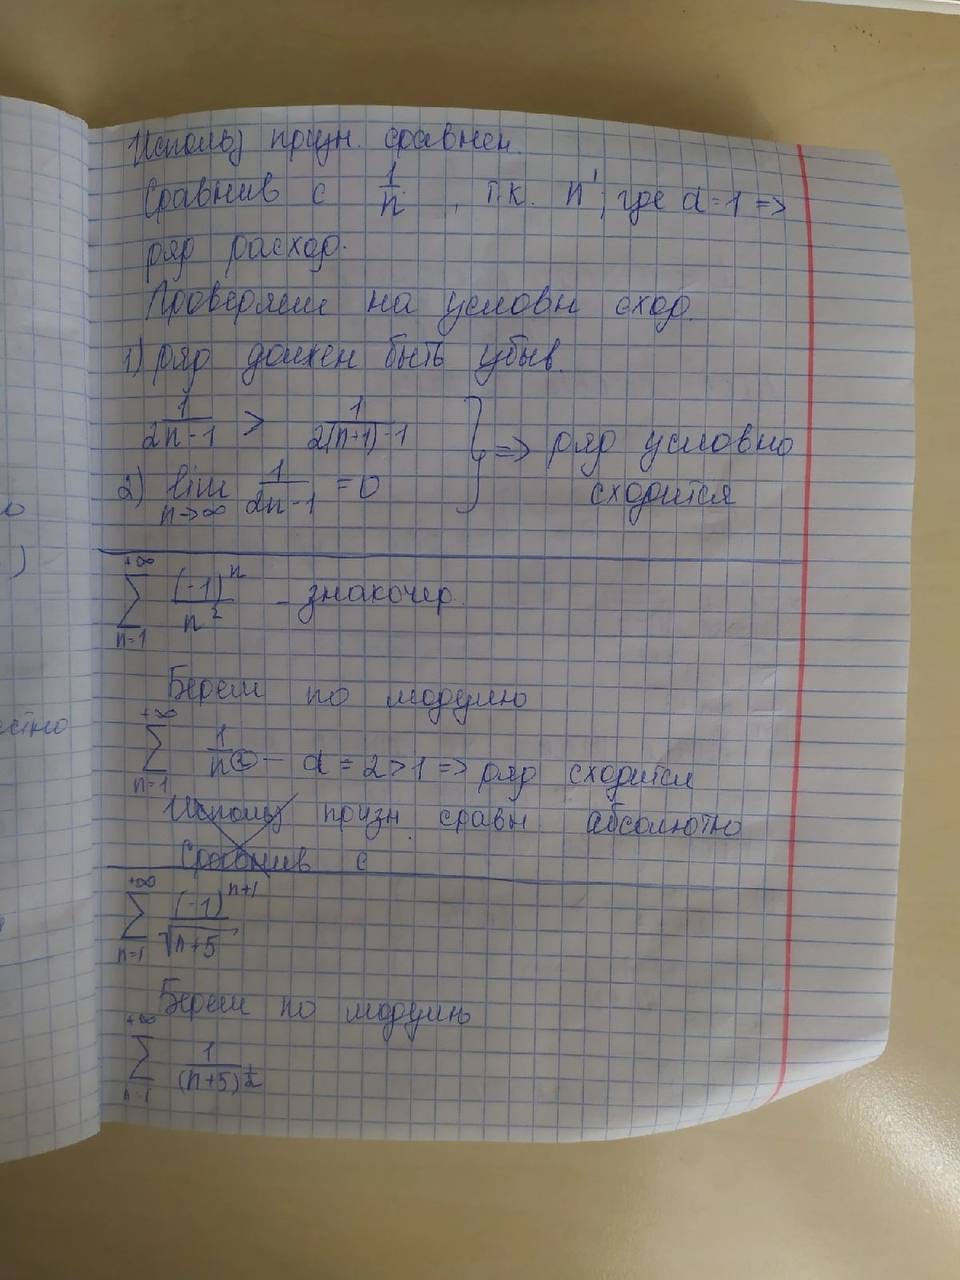 Использ призн. сравнен.
Сравнив с 1/n , т.к. n¹, где α=1 =>
ряд расход.
Проверяем на условн сход.
1) ряд должен быть убыв.
1/(2n-1) > 1/(2(n+1)-1)
2) lim n→∞ 1/(2n-1) = 0 } => ряд условно
сходится
∑ n=1 +∞ (-1)^n/n² - знакочер.
Берем по модулю
∑ n=1 +∞ 1/n² - α = 2 > 1 => ряд сходится
Использ призн сравн абсолютно
Сравнив с
∑ n=1 +∞ (-1)^(n+1)/√(n+5)
Берем по модулю
∑ n=1 +∞ 1/(n+5)^(1/2)